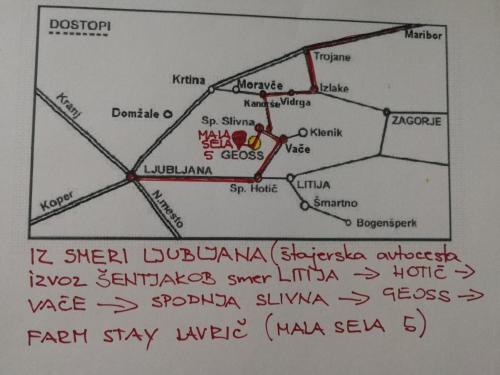 DOSTOPI
Maribor
Trojane
Krtina
Moravče
Izlake
Kranj
Kandrše
Vidrga
Domžale
Sp. Slivna
Klenik
ZAGORJE
MALA
SELA
5
GEOSS
Vače
LJUBLJANA
Sp. Hotič
LITIJA
Koper
N.mesto
Šmartno
Bogenšperk
IZ SMERI LJUBLJANA (štajerska autocesta
izvoz ŠENTJAKOB smer LITIJA → HOTIČ →
VAČE → SPODNJA SLIVNA → GEOSS →
FARM STAY LAVRIČ (MALA SELA 5)